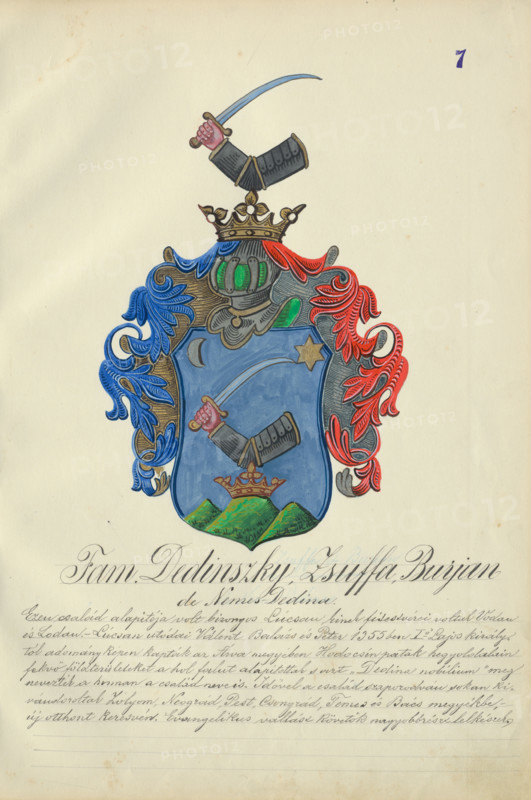 7
Fam. Dedinszky, Zsuffa, Burjan
de Nemes-Dedina.
Ezen család alapitója volt bizonyos Lucsan kinek fitestvérei voltak Vodan
és Zodan.- Lucsan utódai Valent, Balázs és Péter 1355 ben I. Lajos király
tól adománykézen kapták az Arva megyében Hodocsin patak
fekvő földterületeket a hol falut alapitottak s azt "Dedina nobilium" meg
nevezték a honnan a család neve is. Idővel a család szaporodván sokan ki,
vándoroltak Zolyom, Neograd, Pest, Csongrád, Temes és Bács megyékbe,-
új otthont keresvén. Evangelikus vallást követők nagyobbrészt
PHOTO12
PHOTO12
PHOTO12
PHOTO12
PHOTO12